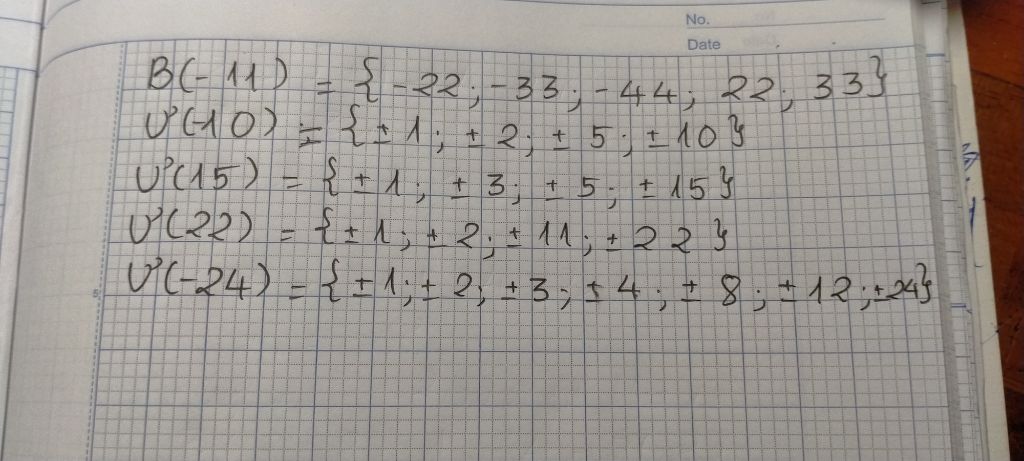 No.
Date
B(-11) = {-22; -33; -44; 22; 33}
Ư(-10) = {±1; ±2; ±5; ±10}
Ư(15) = {±1; ±3; ±5; ±15}
Ư(22) = {±1; ±2; ±11; ±22}
Ư(-24) = {±1; ±2; ±3; ±4; ±8; ±12; ±24}